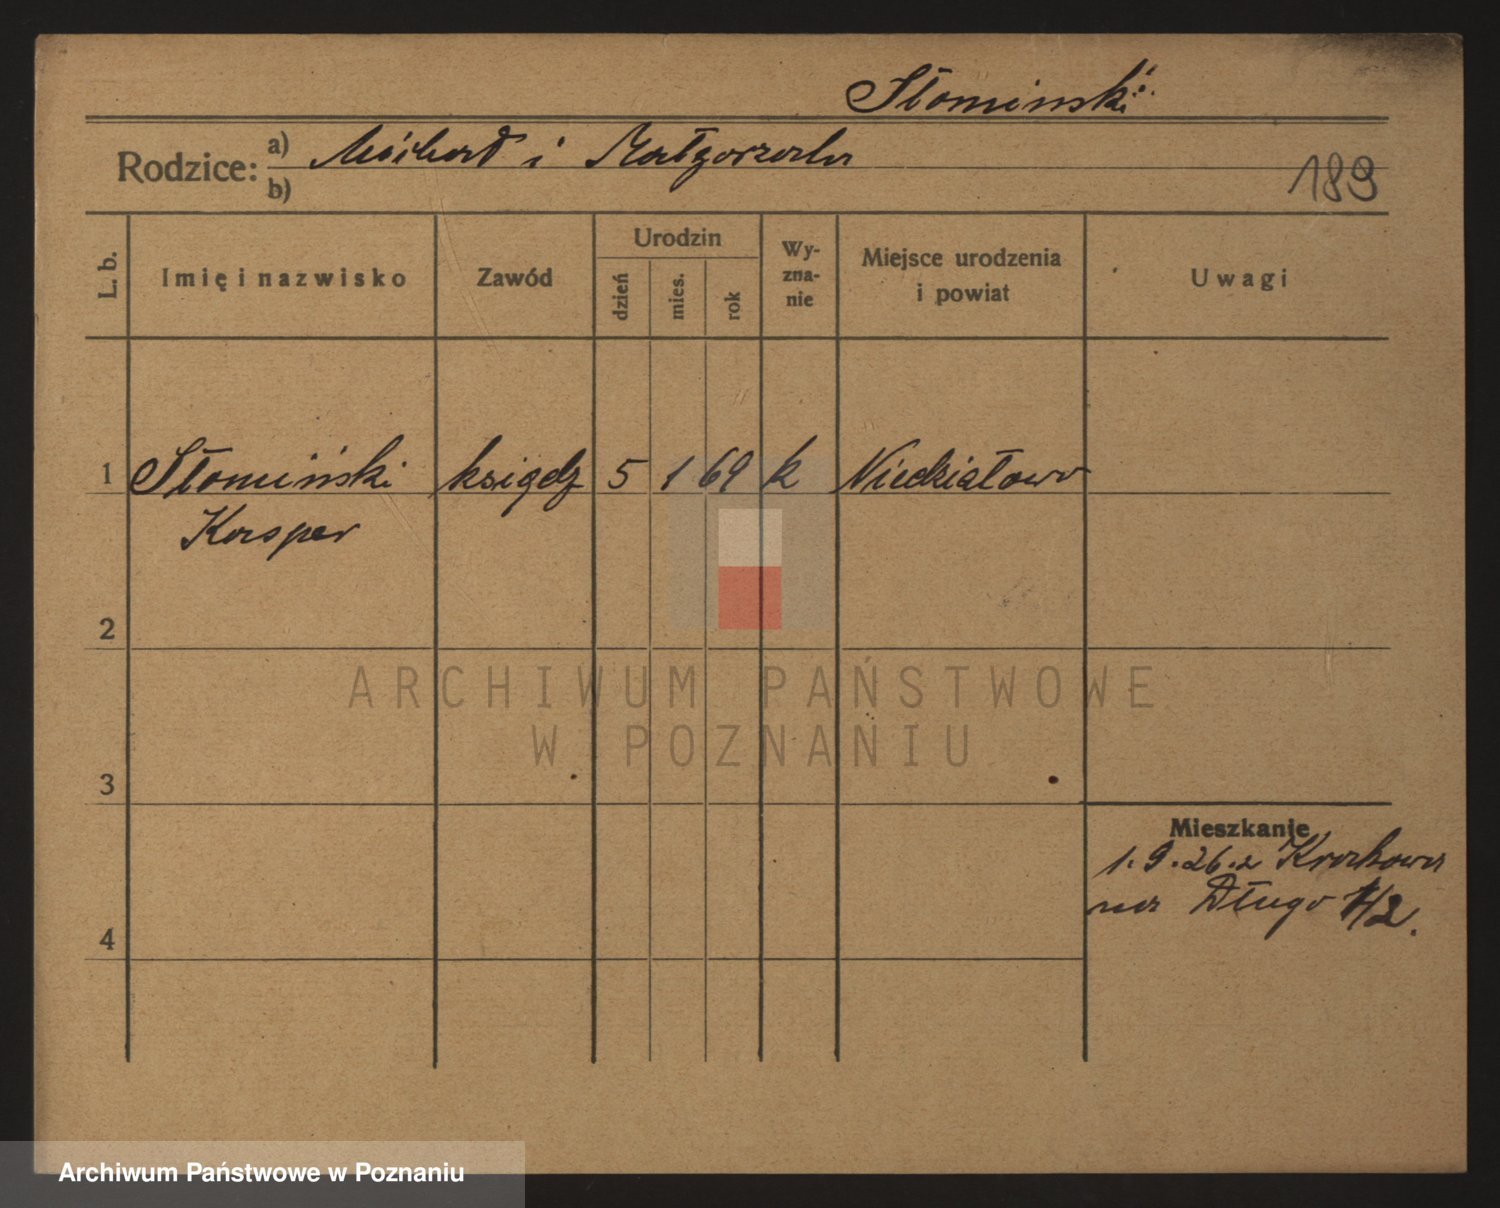 Słomiński
Rodzice: a) Michał i Małgorzata
b)
189
L. b.
Imię i nazwisko
Zawód
Urodzin
dzień
mies.
rok
Wy-
zna-
nie
Miejsce urodzenia
i powiat
Uwagi
1 Słomiński ksiądz 5 1 69 k Niedziałowo
Kasper
2
3
4
Mieszkanie
1.9.26. z Krakowa
na Długo 1/2.
ARCHIWUM PAŃSTWOWE
W POZNANIU
Archiwum Państwowe w Poznaniu